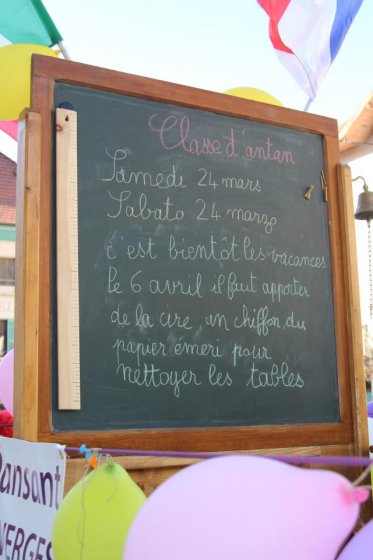 Classe d'antan
Samedi 24 mars
Sabato 24 marzo
c'est bientôt les vacances
le 6 avril il faut apporter
de la cire un chiffon du
papier émeri pour
nettoyer les tables
ansant
VERGES